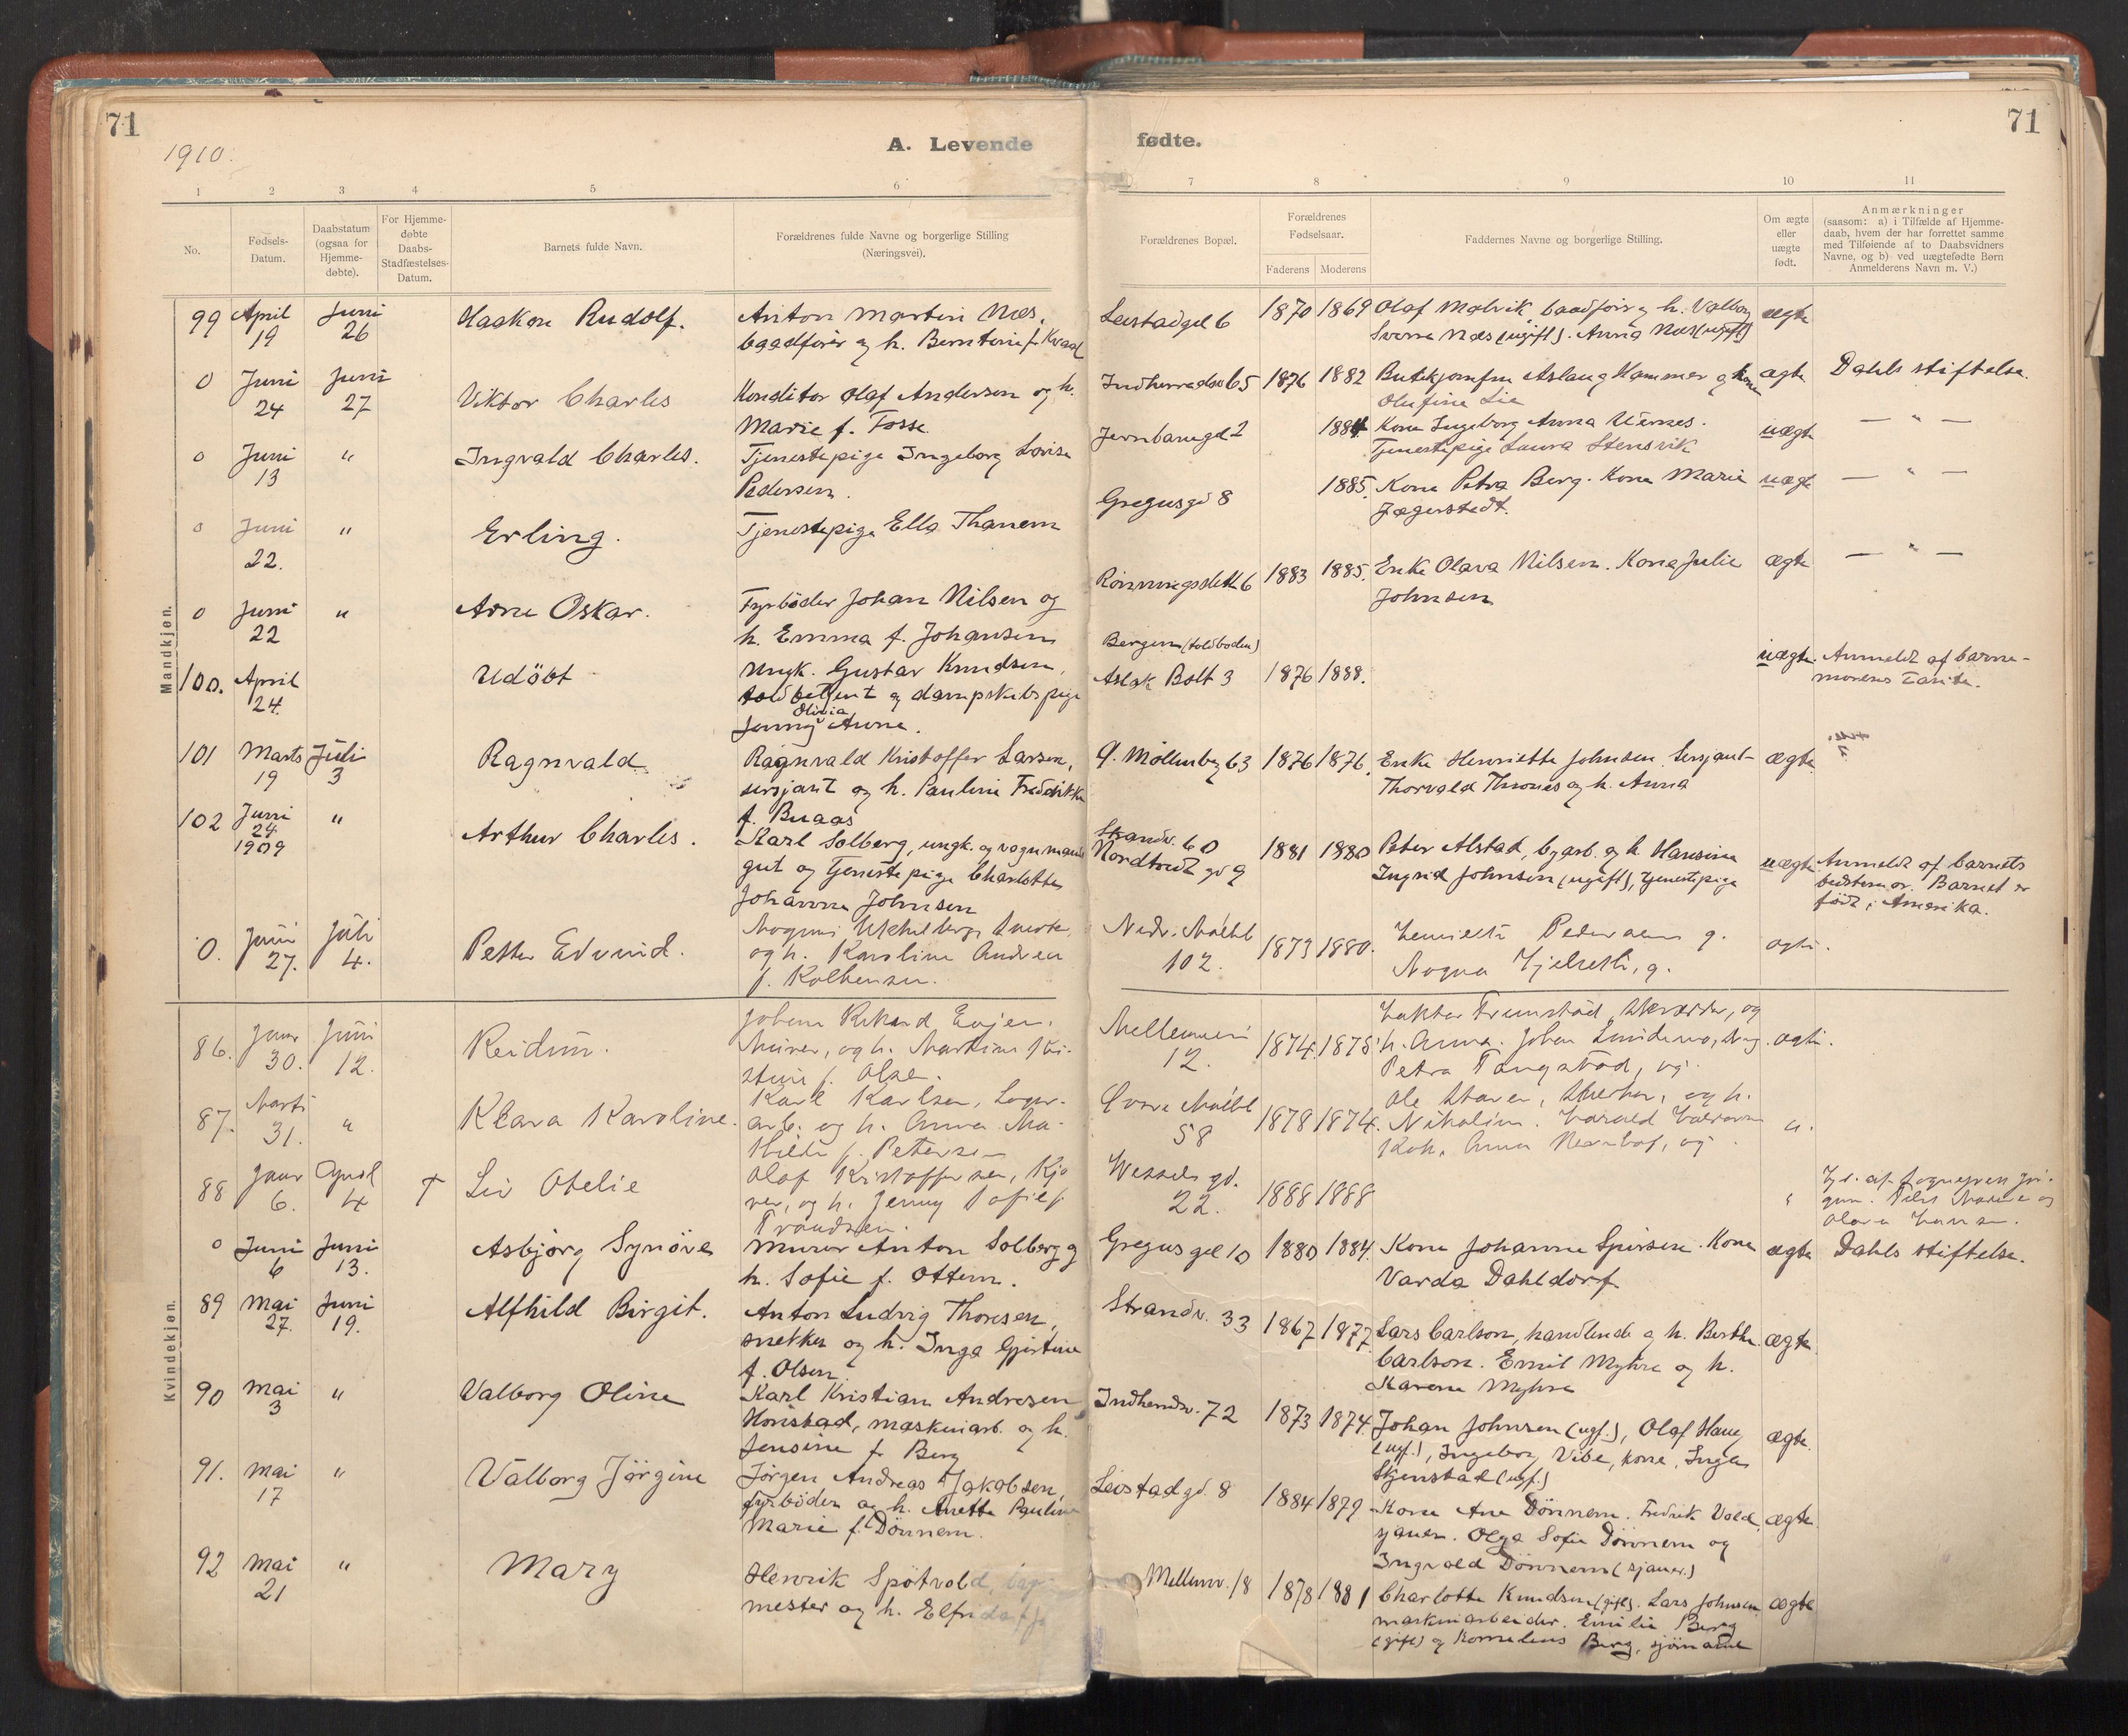 71
71
1910.
A. Levende
fødte.
1 2 3 4 5 6 7 8 9 10 11
No.
Fødsels-
Datum.
Daabstatum
(ogsaa for
Hjemme-
døbte).
For Hjemme-
døbte
Daabs-
Stadfæstelses-
Datum.
Barnets fulde Navn.
Forældrenes fulde Navne og borgerlige Stilling
(Næringsvei).
Forældrenes Bopæl.
Forældrenes
Fødselsaar.
Faderens Moderens
Faddernes Navne og borgerlige Stilling.
Om ægte
eller
uægte
født.
Anmærkninger
(saasom: a) i Tilfælde af Hjemme-
daab, hvem der har forrettet samme
med Tilføiende af to Daabsvidners
Navne, og b) ved uægtefødte Børn
Anmelderens Navn m. V.)
Mandkjøn.
99 April 19 Juni 26
Haakon Rudolf.
Anton Martin Næs,
baadfører og h. Berntine f. Kvaal
Leistadgd 6
1870 1869
Olaf Malvik, baadfører h. Valborg
Sverre Næs (ugift). Anna Næs (ugift)
ægte
0 Juni 24 Juni 27
Viktor Charles
Konditor Olaf Andersen og h.
Marie f. Fosse
Indherredsv 65
1876 1882
Butikjomfru Aslaug Hammer og kone
Olufine Lie
ægte
Dahls stiftelse.
0 Juni 13 "
Ingvald Charles.
Tjenestepige Ingeborg Lovise
Pedersen.
Jernbanegd 2
1884
Kone Ingeborg Anna Uernes.
Tjenestepige Laura Stensvik
uægte
— " —
0 Juni 22. "
Erling.
Tjenestepige Ella Thanem
Gregusgd 8
1885.
Kone Petra Berg. Kone Marie
Jægerstedt.
uægte
— " —
0 Juni 22 "
Arne Oskar.
Fyrbøder Johan Nilsen og
h. Emma f. Johansen
Rønningsslett 6
1883 1885.
Enke Olava Nilsen. Kone Julie
Johnsen
ægte
— " —
100. April 24.
Udöbt
Ungk. Gustav Knudsen,
toldbetjent og dampskibspige
Jenny Olivia Anne.
Bergen (toldboden)
Aslak Bolt 3
1876 1888.
uægte.
Anmeldt af barne-
morens tante.
101 Marts 19 Juli 3
Ragnvald
Ragnvald Kristoffer Larsen,
sersjant og h. Pauline Fredrikke
f. Buaas
Ø. Møllenberg 63
1876 1876.
Enke Henriette Johnsen. Sersjant
Thorvald Thrones og h. Anna
ægte
102 Juni 24 1909 "
Arthur Charles.
Karl Solberg, ungk. og vognmands
gut og tjenestepige Charlotte
Johanna Johnsen
Strandv. 60
Nordtvedt gd 9
1881 1880
Peter Alstad, byarb. og h. Hansine
Ingrid Johnsen (ugift), tjenestepige
uægte
Anmeldt af barnets
bedstemor. Barnet er
født i Amerika.
0. Juni 27. Juli 4.
Petter Edvind.
og h. Karoline Andrea
f. Kolbensen.
Nedr. Møllbl
102.
1873 1880.
Pedersen g.
ægte.
Kvindekjøn.
86. Januar 30. Juni 12.
Reidun.
Johan Rikard Evjen,
Murer, og h.
f. Olsen.
Mellemveien
12.
1874. 1875.
ægte.
87. Marts 31. "
Klara Karoline.
Karl Karlsen, Lager-
arb. og h. Anna Ma-
thilde f. Petersen
Øvre Møllbl
58
1878 1874.
".
88 Januar 6. April 4 †
Liv Otelie
Olaf Kristoffersen, Kjø
rer, og h. Jenny Sofie f.
Trondsen.
Wessels gd.
22.
1888 1888
"
0 Juni 6 Juni 13.
Asbjørg Synöve
Murer Anton Solberg og
h. Sofie f. Ottem.
Gregus gd 10
1880 1884.
Kone Johanne Sjursen. Kone
Varda Dahldorf
ægte
Dahls stiftelse.
89 Mai 27. Juni 19.
Alfhild Birgit.
Anton Ludvig Thoresen,
snekker og h. Inga Gjertine
f. Olsen
Strandv. 33
1867 1877.
Lars Carlson, handlende og h. Berthe
Carlson. Emil Myhre og h.
Karene Myhre
ægte.
90 Mai 3 "
Valborg Oline
Karl Kristian Andresen
Honstad, maskinarb. og h.
Jensine f. Berg
Indherredsv. 72
1873 1874.
Johan Johnsen (ugf.), Olaf Haug
(ugf.), Ingeborg Vibe, kone, Inga
Stjenstad (ugf.)
ægte.
91. Mai 17 "
Valborg Jörgine
Jørgen Andreas Jakobsen,
fyrbøder og h. Anette Pauline
Marie f. Dönnem.
Leistadgd. 8
1884 1879.
Kone Ane Dönnem. Fredrik Vold,
sjauer. Olga Sofie Dönnem og
Ingvald Dönnem (sjauer.)
ægte
92 Mai 21 "
Mary
Henrik Spøtvold,
mester og h. Elfrida f.
Mellemv. 18
1878 1881
Charlotte Knudsen (gift). Lars Johnsen
maskinarbeider. Emilie Berg
(gift) og Kornelius Berg, sjömand
ægte